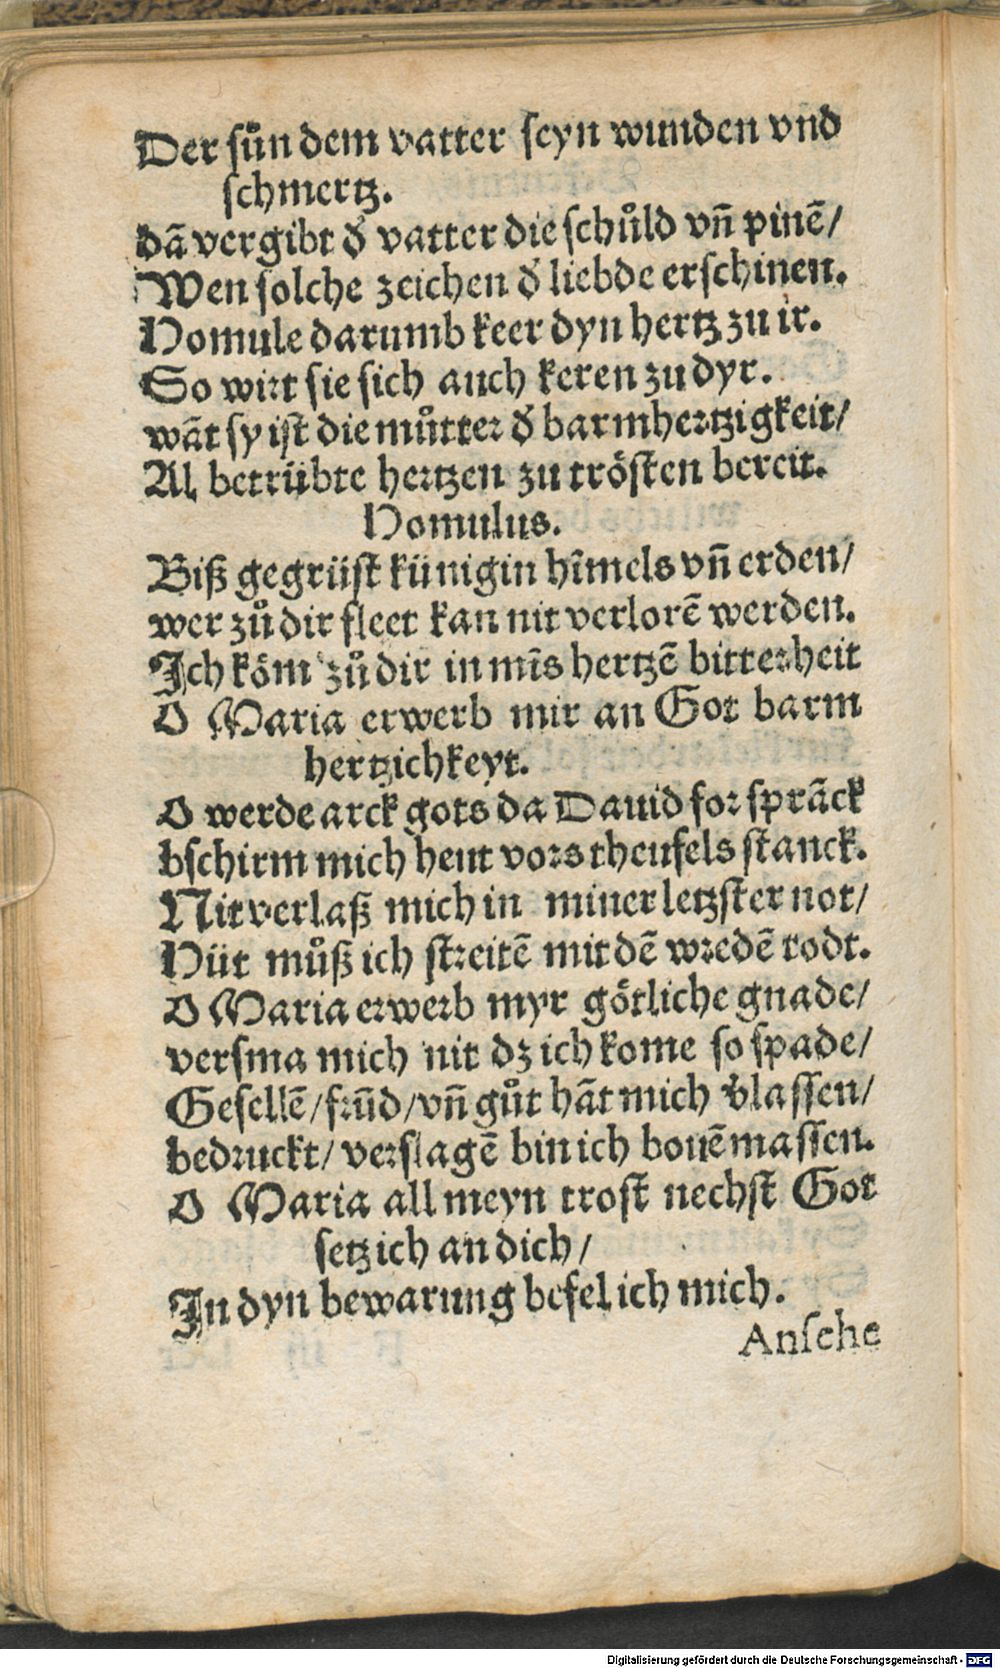 Der sůn dem vatter seyn wunden vnd
schmertz.
dā vergibt đ vatter die schůld vñ pinē/
Wen solche zeichen đ liebde erschinen.
Homule darumb keer dyn hertz zu ir.
So wirt sie sich auch keren zu dyr.
wāt sy ist die můtter đ barmhertzigkeit/
Al betrübte hertzen zu trösten bereit.
Homulus.
Biß gegrüst künigin hīmels vñ erden/
wer zů dir fleet kan nit verlorē werden.
Ich köm zů dir in mīs hertzē bitterheit
O Maria erwerb mir an Got barm
hertzichkeyt.
O werde arck gots da Dauid for sprāck
bschirm mich heut vors theufels stanck.
Nit verlaß mich in miner letzster not/
Hüt můß ich streitē mit dē wredē todt.
O Maria erwerb myr götliche gnade/
versma mich nit dz ich kome so spade/
Gesellē/frūd/vñ gůt hāt mich v̄lassen/
bedruckt/ verslagē bin ich bouē massen.
O Maria all meyn trost nechst Got
setz ich an dich/
In dyn bewarung befel ich mich.
Ansehe
Digitalisierung gefördert durch die Deutsche Forschungsgemeinschaft - DFG